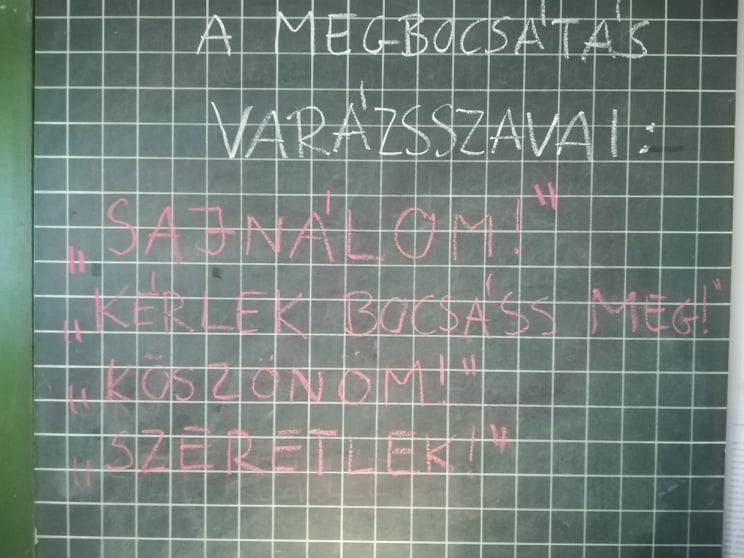 A MEGBOCSÁTÁS
VARÁZSSZAVAI:
„SAJNÁLOM!"
„KÉRLEK BOCSÁSS MEG!"
„KÖSZÖNÖM!"
„SZERETLEK!"